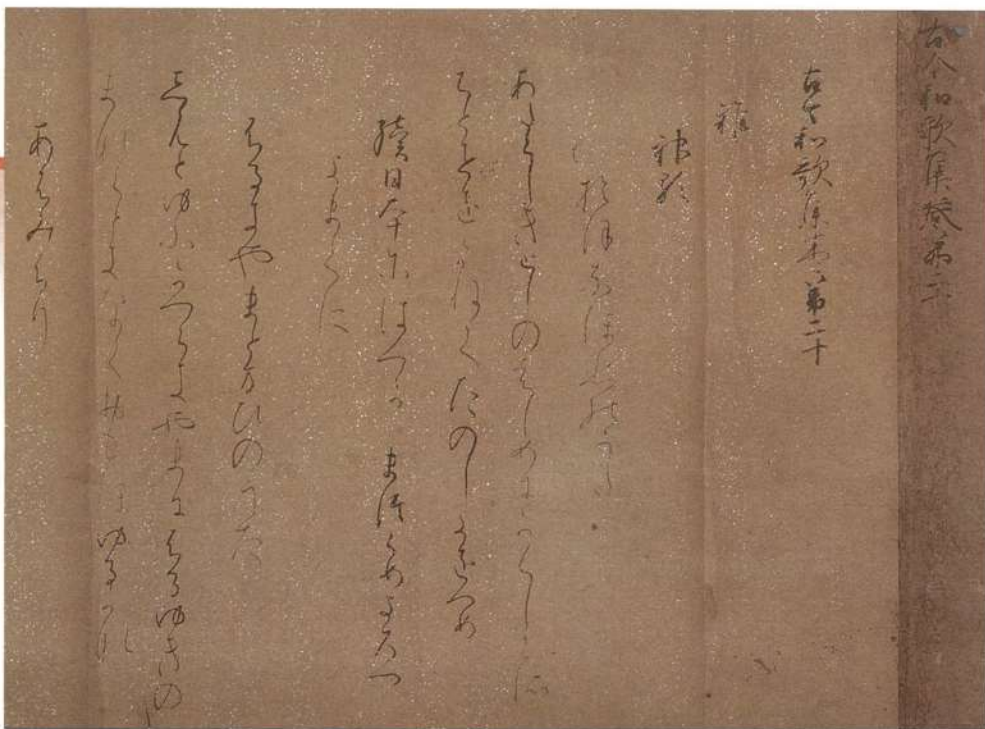 古今和歌集卷第二十
古今和歌集卷第二十
雜
おほなほひのうた
あたらしきとしのはしめにかくしこそ
ちとせをかねてたのしきをつめ
續日本紀にはつかへまつらめよろつ
よまてに
ふるきやまとまひのうた
しもとゆふかつらきやまにふるゆきの
まなくときなくおもほゆるかな
あふみふり